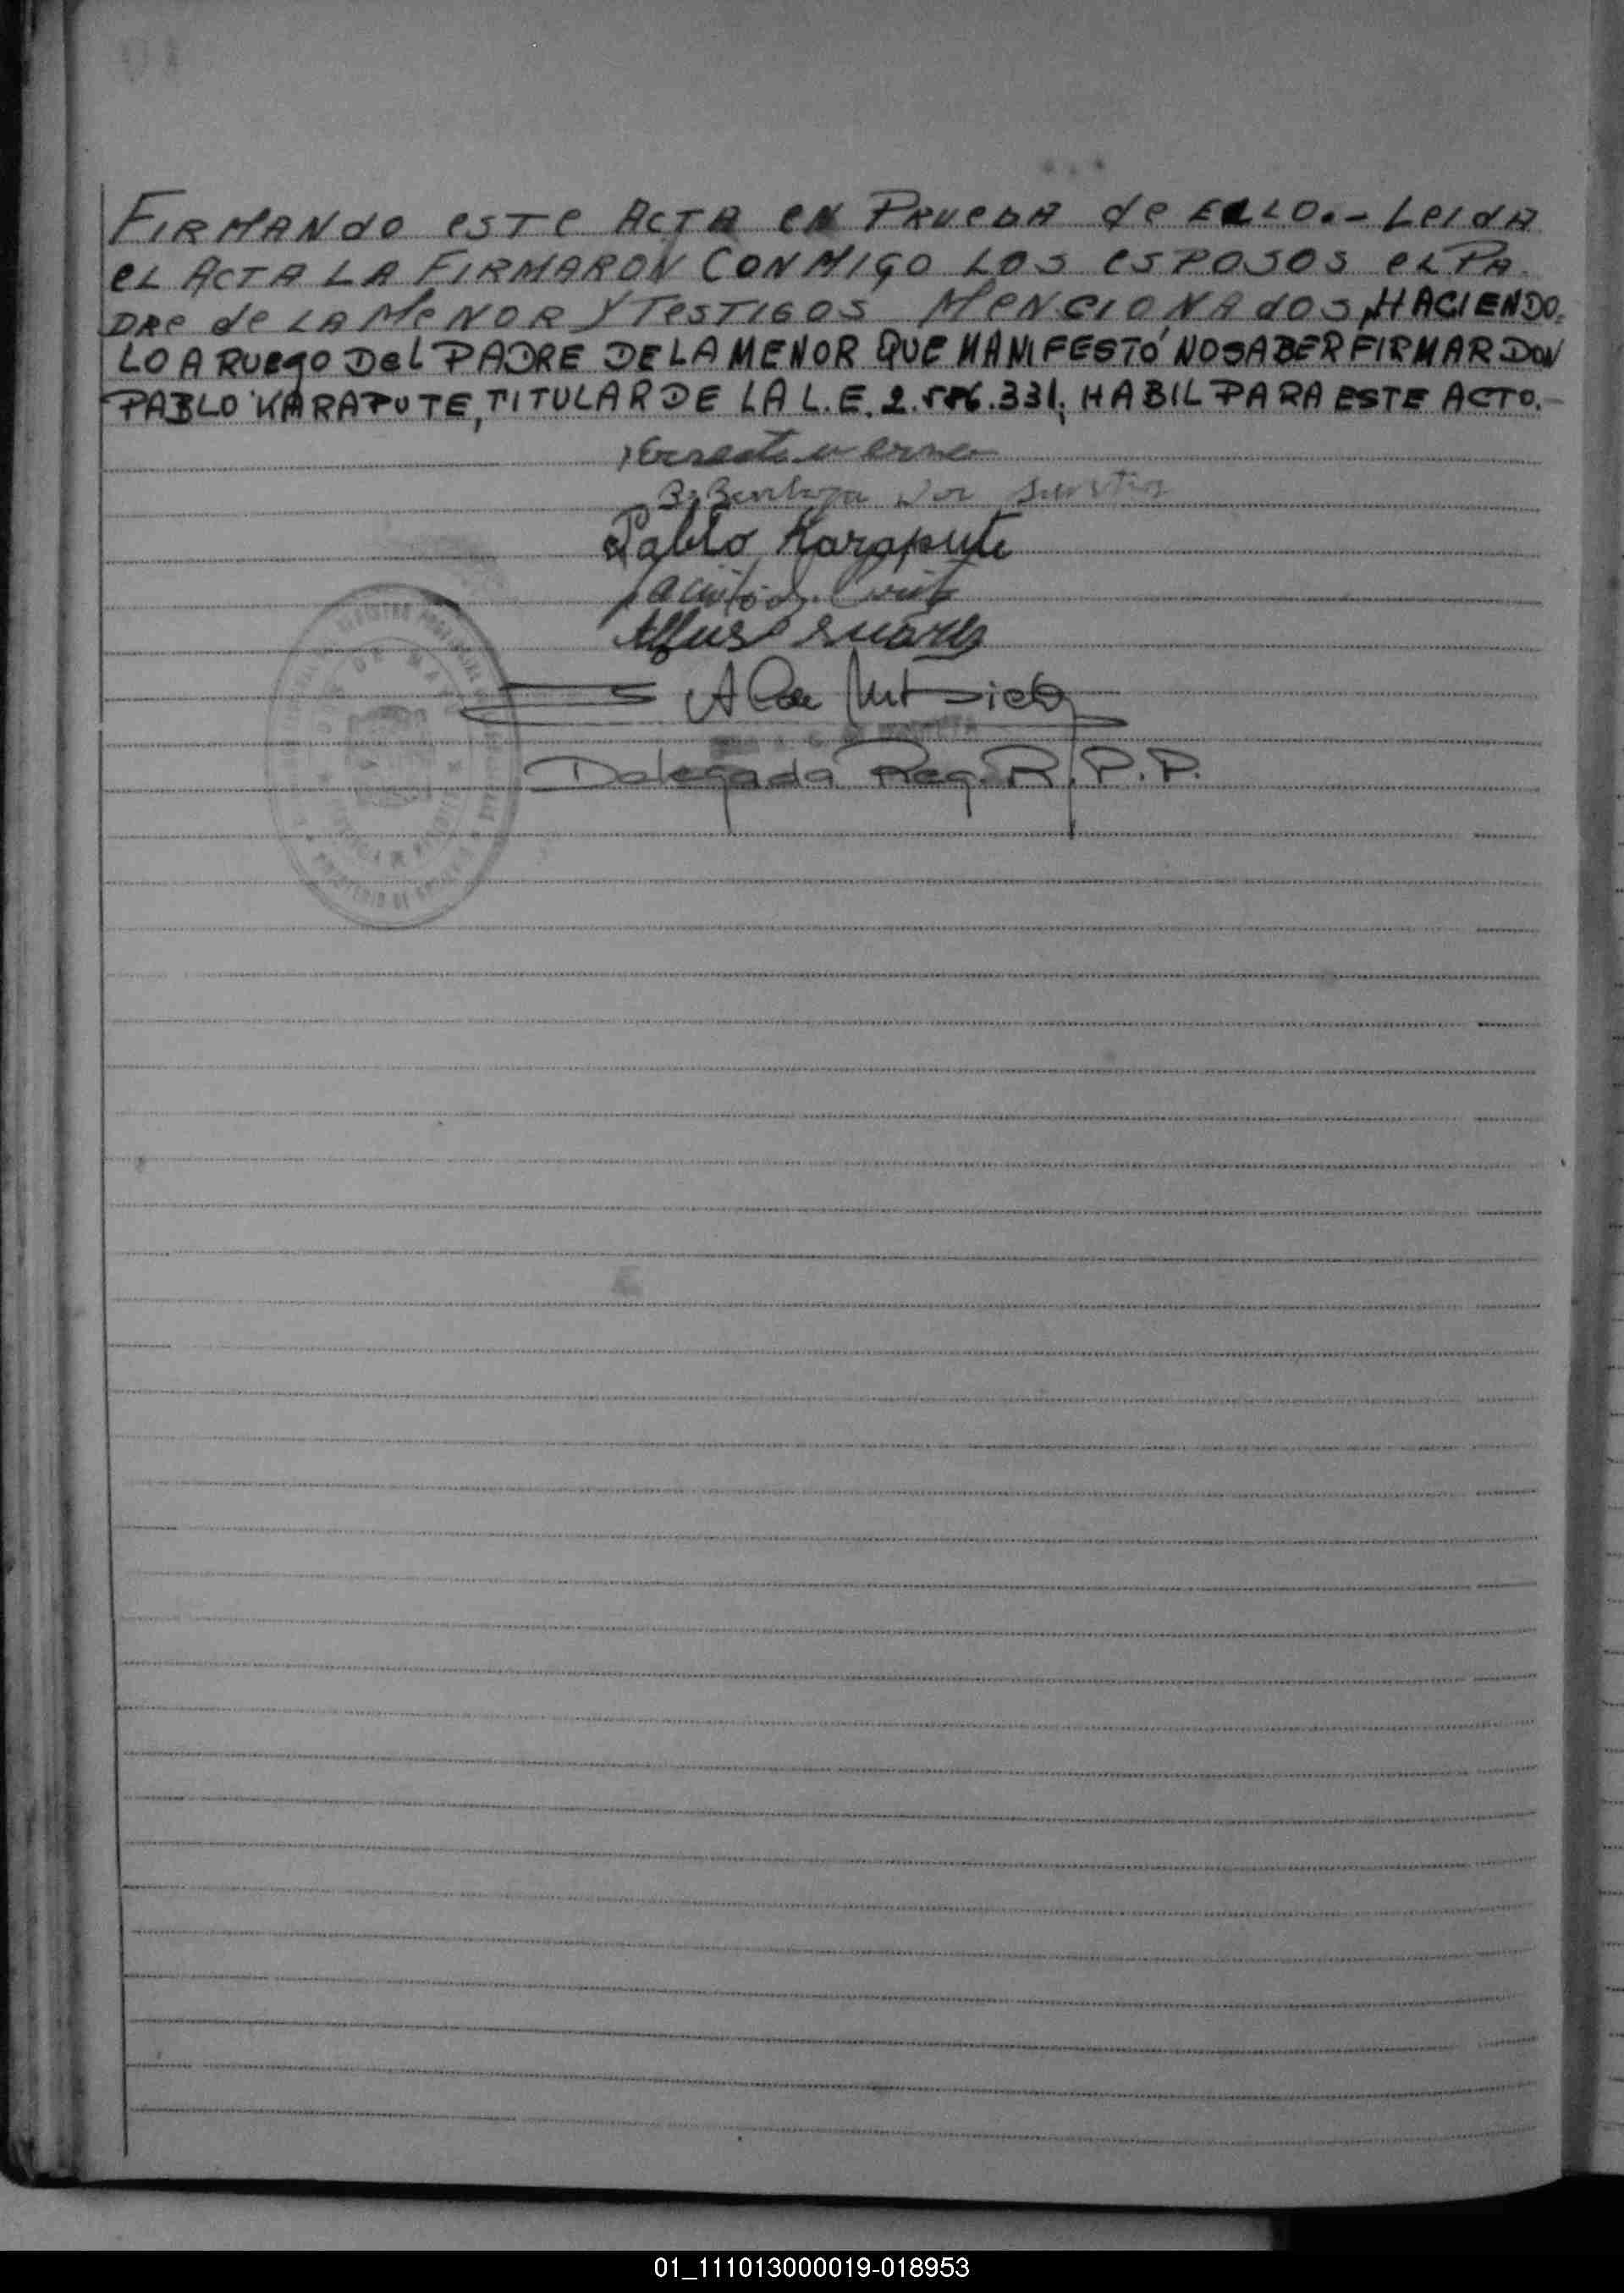 FIRMANdO esTe ACTA eN PRUebA de ELLO.- LeIdA
eL ACTA LA FIRMARON CONMIGO LOS esPOSOS eL PA-
DRe de LA MeNOR Y TesTIGOS MeNCIONAdOS, HACIENDO-
LO A RUEgO DEL PADRE DE LA MENOR QUE MANIFESTÓ NO SABER FIRMAR DON
PABLO KARAPUTE, TITULAR DE LA L.E. 2.586.331, HABIL PARA ESTE ACTO.-
Pablo Karapute
Suárez
Delegada Reg. R.P.P.
01_111013000019-018953